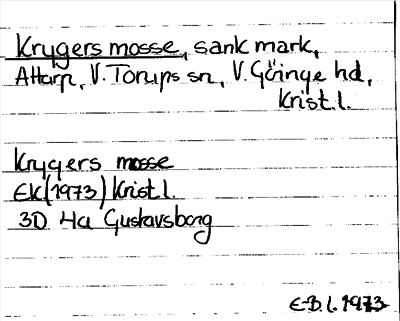 Krygers mosse, sank mark,
Attarp, V. Torups sn, V. Göinge hd,
Krist. l.
Krygers mosse
EK (1973) Krist. l.
3D 4a Gustavsborg
E-B. L. 1973